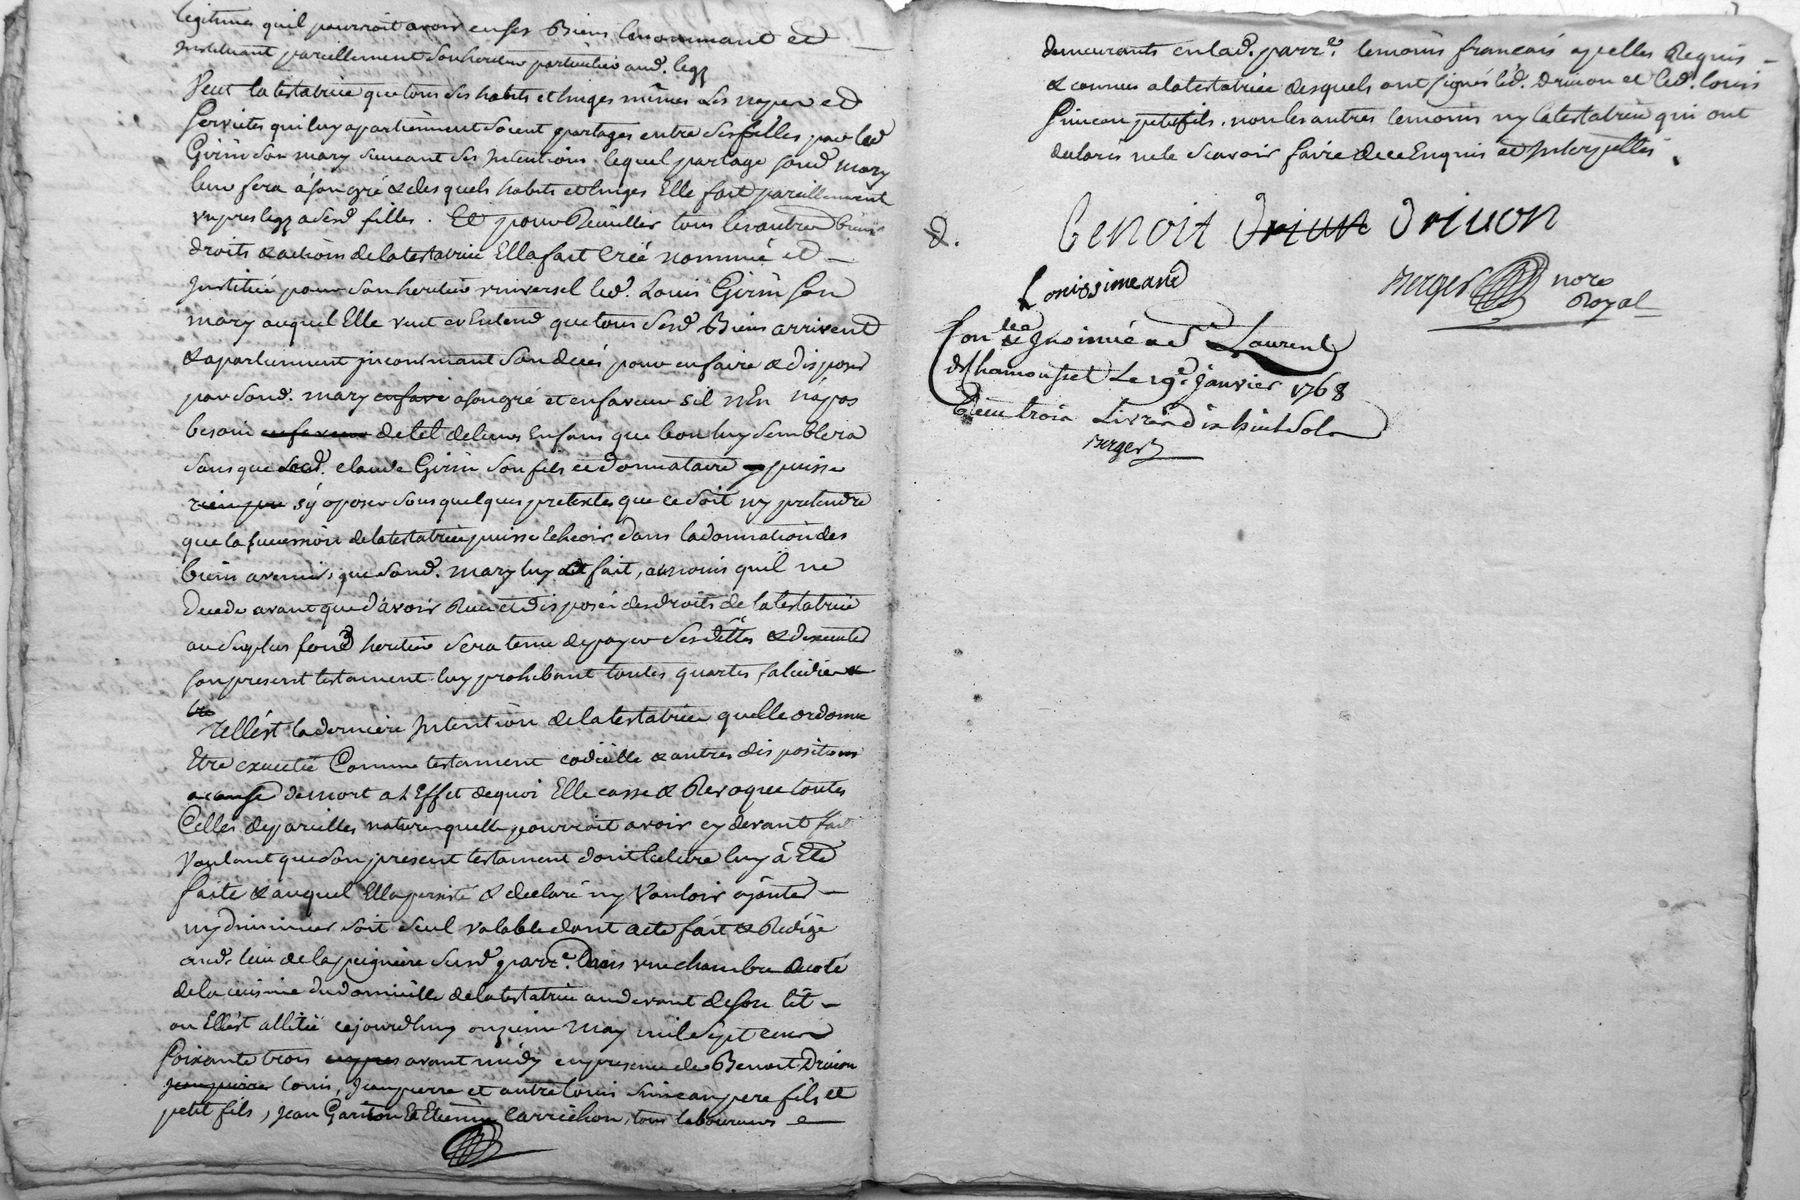 legitimes quil pourroit avoir en ses Biens la nommant et
Instituant pareillement son heritier particulier aud. legs
Veut la testatrice que tous ses habits et linges mêmes les napes et
serviettes qui luy apartiennent soient partagés entre ses filles par led
Girin son mary suivant ses Intentions lequel partage sond. mary
leur fera à son gré & desquels habits et linges Elle fait pareillement
un prelegs a sesd. filles. Et pour Recuillir tous les autres biens
droits & actions de la testatrice Ella fait Créé nommé et
Institué pour son heritier universel led. Louis Girin son
mary auquel Elle veut et Entend que tous sesd. Biens arrivent
& apartiennent incontinant son decés pour en faire & disposer
par sond. mary enfave a son gré et en faveur sil n'En n'a pas
besoin en faveur de tel de leurs Enfans que bon luy semblera
sans que led. claude Girin son fils et donnataire puisse
s'y oposer sous quelques pretextes que ce soit ny pretendre
que la succession de la testatrice puisse Echeoir dans la donnation des
biens avenir, que sond. mary luy a fait, amoins quil ne
decede avant que d'avoir Reçu et disposé des droits de la testatrice
au surplus sond. heritier sera tenu de payer ses dettes & d'executer
son present testament luy prohibant toutes quartes falcidie &
Telle est la derniere Intention de la testatrice quelle ordonne
Etre executée Comme testament codicille & autres dispositions
a cause de mort a l'Effet dequoi Elle casse & Revoque toutes
Celles de pareilles nature quelle pourroit avoir cy devant fait
Voulant que son present testament dont lecture luy à Eté
faite & auquel Ella persisté & declaré ny Vouloir ajouter
ny diminuer soit seul valable dont acte fait & Redigé
aud. lieu de la peigniere susd. parr.e Dans une chambre a coté
de la cuisine du domicille de la testatrice au devant de son lit
ou Ell'est allitée cejourdhuy onzieme May mil sept cent
soixante trois avant midy en presence de Benoit Drivon
jeanpierre Louis, Jeanpierre et autre Louis Simean pere fils et
petit fils, Jean Gariton Et Etienne Carrichon, tous laboureurs
demeurants en lad. parr.e temoins francais apellés Requis
& connus a la testatrice desquels ont signé led. Drivon et led. Louis
Simean petit fils. non les autres temoins ny la testatrice qui ont
declarés ne le scavoir faire de ce Enquis et Interpellés.
d. Benoit Drivon Drivon
Louis simeand
Berger nore
Royal
Con.lée & Insinué a St Laurent
de Chamousset Le 19e Janvier 1768
Recu trois Livres dix huit sols
Berger